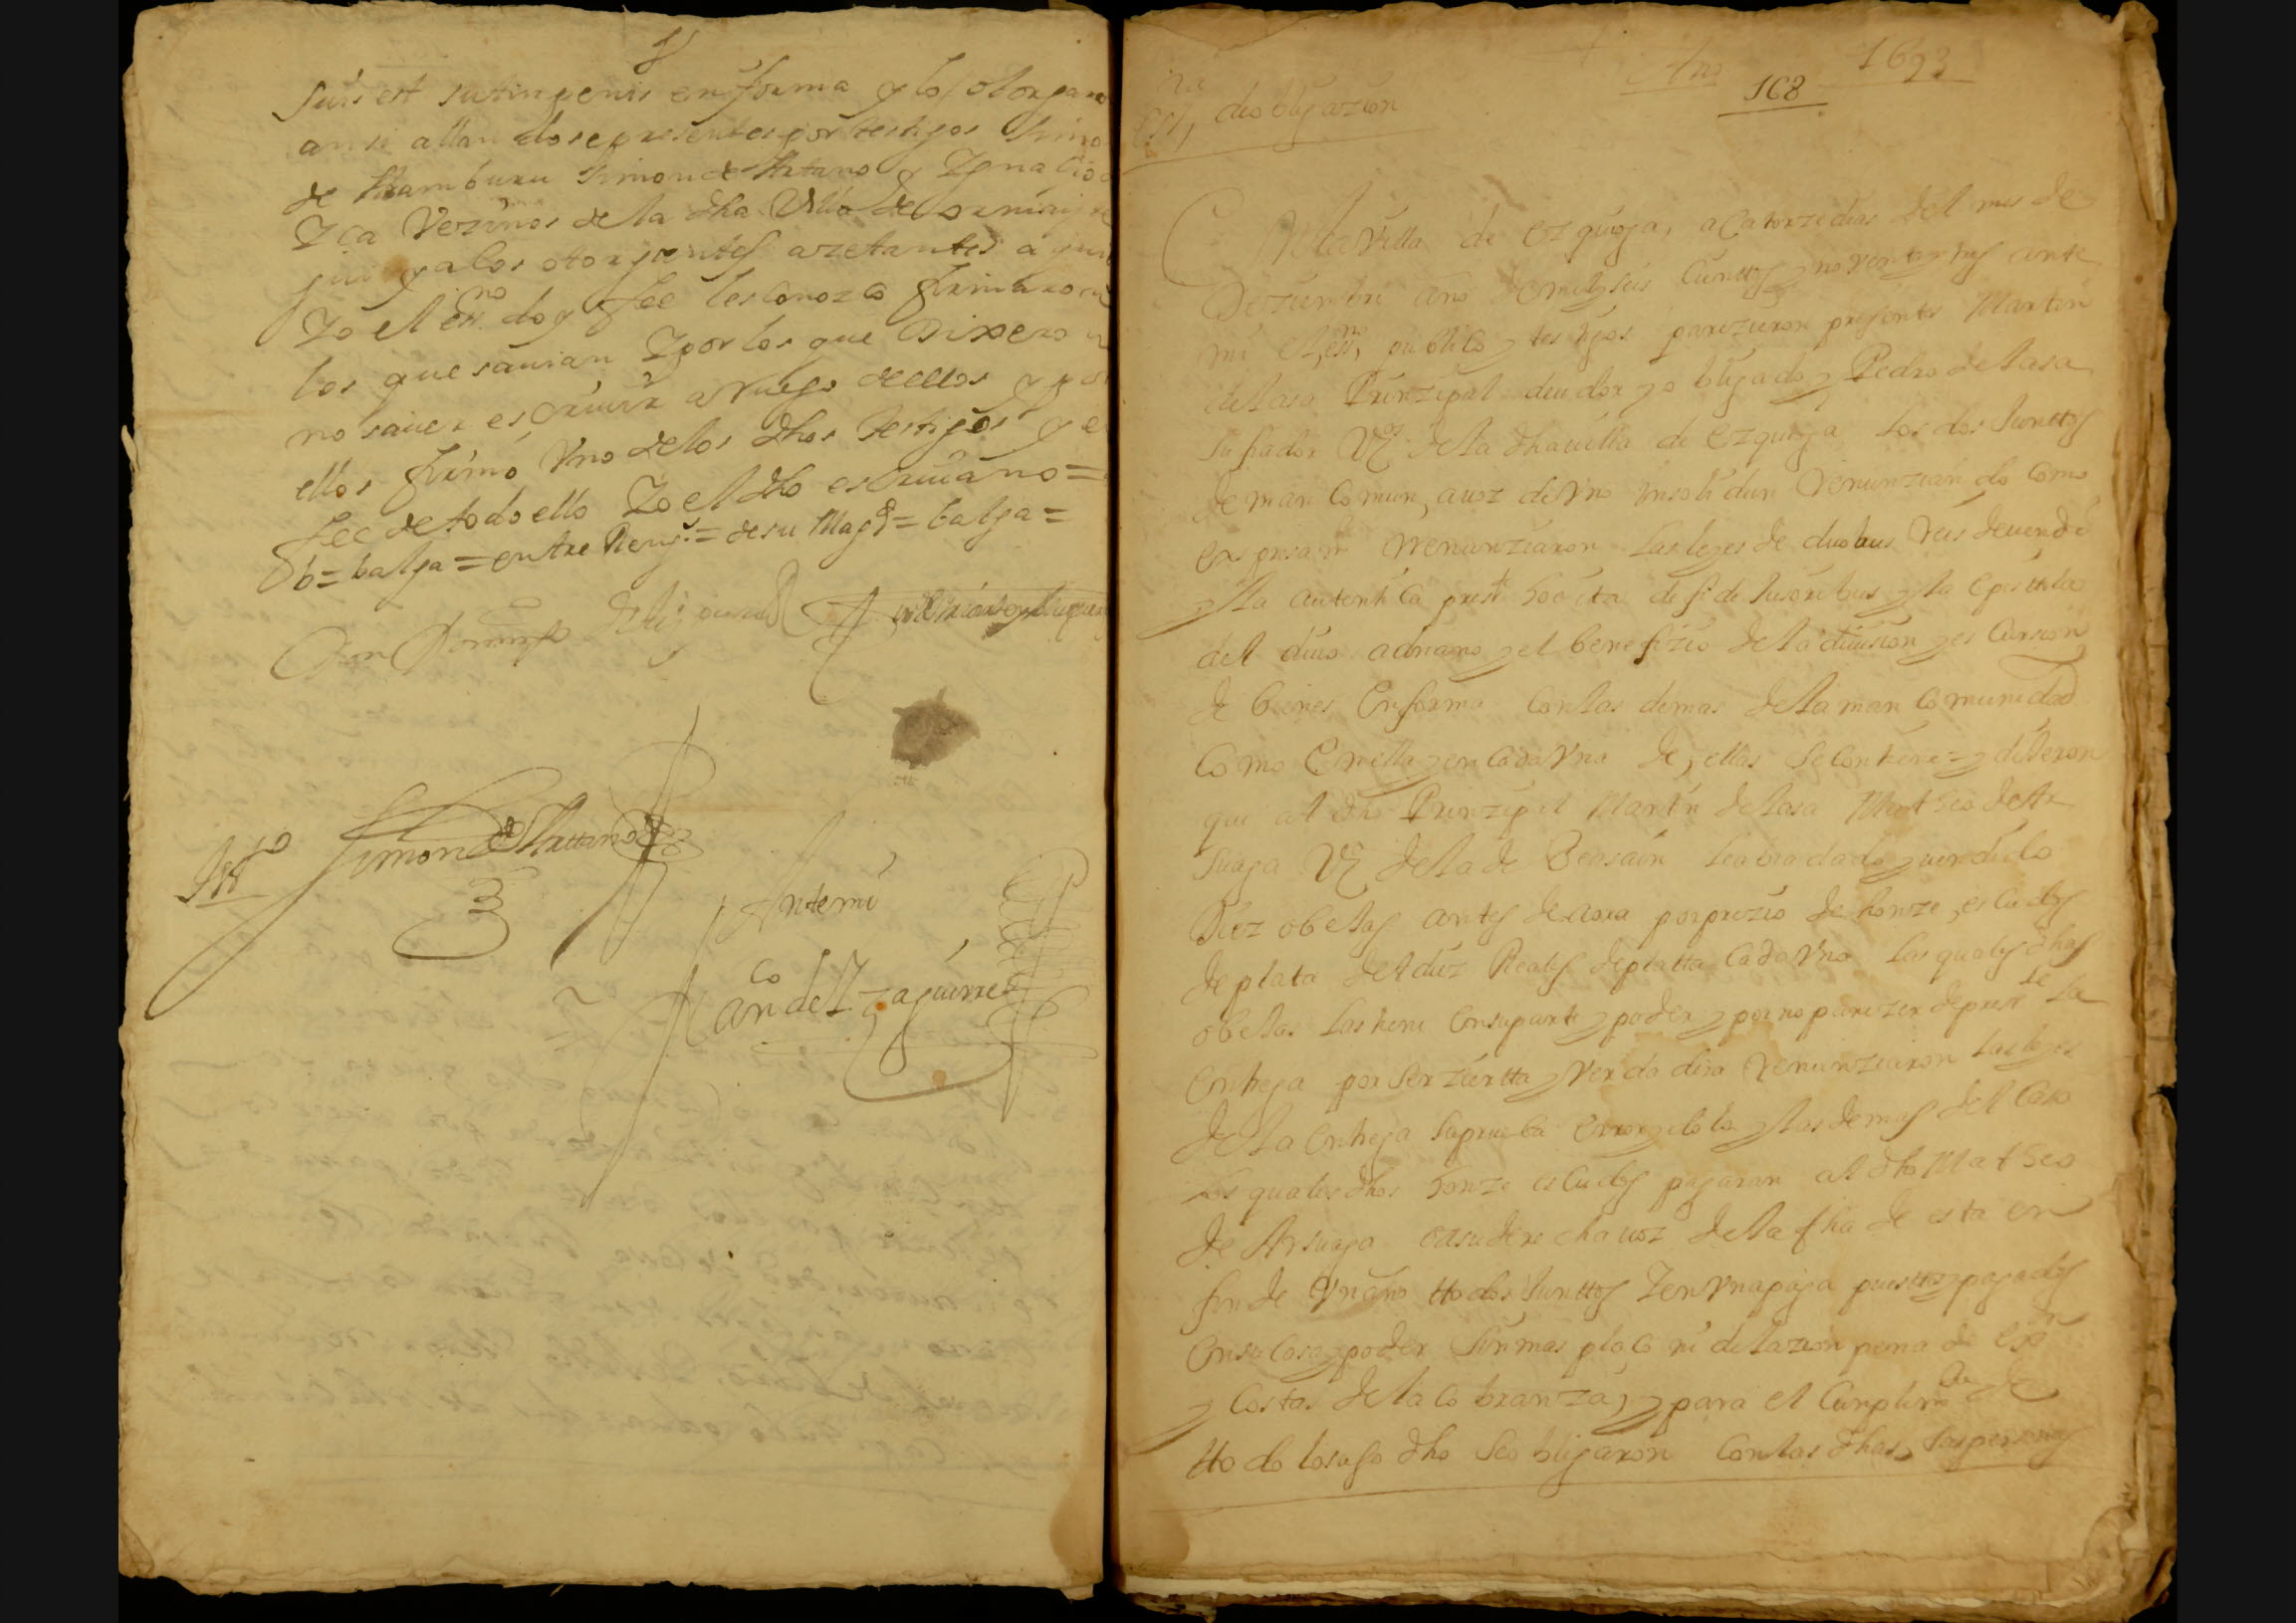 suis est sutingenis en forma y lo otorgaro
ansi allandose presentes por testigos
de Aramburu Simon de Attano y Ygnacio
Yca Vezinos de la dha Villa de ormaiz
y a los otorgantes azetantes a quie
Yo el essno doy fee les conozco firmaron
los que sauian Y por los que Dixeron
no sauer escriuir a Ruego de ellos y por
ellos firmó Vno de los dhos testigos y e
fee de todo ello Yo el dho escriuano =
b = balga = entre Reng.s = de su Magd = balga =
Don Domingo
Tto Simon de Attano
Antemi
Ando de Yzaguirre
Ano 1693
168
de obligazion
En la Villa de ezquioga, a Catorze dias del mes de
Deziembre ano de mill y seis Cienttos y noventa y tres ante
mi el essno publico y testigos parezieron presentes Martin
de lasa Prinzipal deudor y obligado y Pedro de lasa
su fiador Vos de la dha uilla de ezquioga los dos Junttos
de man Comun, a uoz de Vno ynsolidun Renunziando Como
expresam Renunziaron las leyes de duobus Reis deuendi
y la autentica presti hocita de fide Jusoribus y la epistola
del diuo adriano y el benefizio de la diuision y escursion
de bienes En forma Con las demas de la man Comunidad
Como En ella y en Cada Vna de ellas se Contiene = y dixeron
que al dho Prinzipal Martin de lasa Matheo de Ar
suaga Vo de la de Beasain le abia dado y uendido
Diez obejas antes de aora por prezio de honze escudos
de plata de a diez Reales de platta Cada Vno las quales dhas
obejas las tiene En su parte y poder y por no parezer de preste la
Entrega por ser zierta y Verdadera Renunziaron las leyes
de la Entrega la prueba error y dolo y las demas del Caso
los quales dhos honze escudos pagaran al dho Matheo
de Arsuaga o a su derecho auoz de la fha de esta en
fin de Vn ano ttodos Junttos Y en Vna paga puestos y pagados
En su Casa y poder sin mas plaço ni dilazion pena de exon
y Costas de la Cobranza, y para el Cumplimto de
ttodo lo suso dho se obligaron Con las dhas sus personas